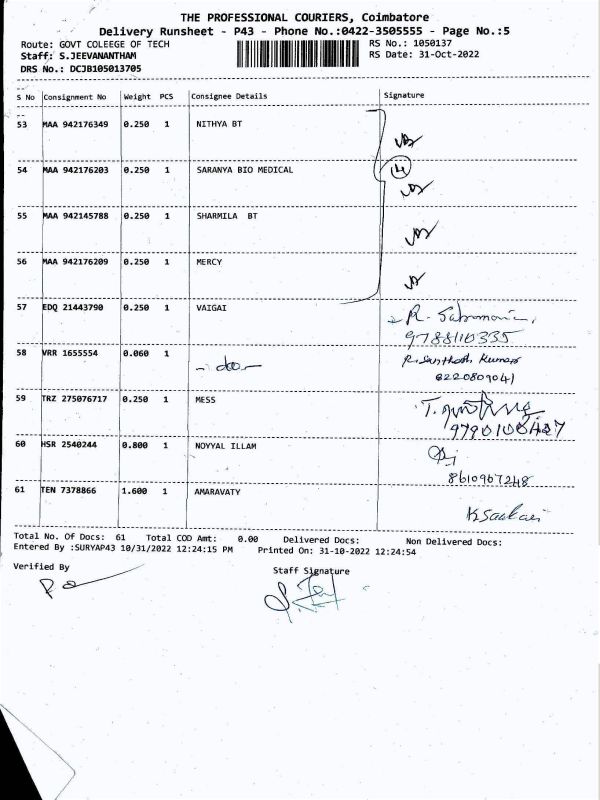 THE PROFESSIONAL COURIERS, Coimbatore
Delivery Runsheet - P43 - Phone No.:0422-3505555 - Page No.:5
Route: GOVT COLEEGE OF TECH RS No.: 1050137
Staff: S.JEEVANANTHAM RS Date: 31-Oct-2022
DRS No.: DCJB105013705
S No Consignment No Weight PCS Consignee Details Signature
53 MAA 942176349 0.250 1 NITHYA BT
54 MAA 942176203 0.250 1 SARANYA BIO MEDICAL
55 MAA 942145788 0.250 1 SHARMILA BT
56 MAA 942176209 0.250 1 MERCY
57 EDQ 21443790 0.250 1 VAIGAI
9788110335
58 VRR 1655554 0.060 1 - do - R. Santhosh Kumar
8220809041
59 TRZ 275076717 0.250 1 MESS
60 HSR 2540244 0.800 1 NOYYAL ILLAM
8610967248
61 TEN 7378866 1.600 1 AMARAVATY
Total No. Of Docs: 61 Total COD Amt: 0.00 Delivered Docs: Non Delivered Docs:
Entered By :SURYAP43 10/31/2022 12:24:15 PM Printed On: 31-10-2022 12:24:54
Verified By Staff Signature